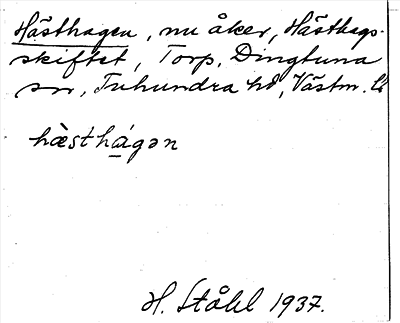 Hästhagen, nu åker, Hästhags-
skiftet, Torp, Dingtuna
sn, Tuhundra hd, Västm. lä
hὰsthágən
H. Ståhl 1937.